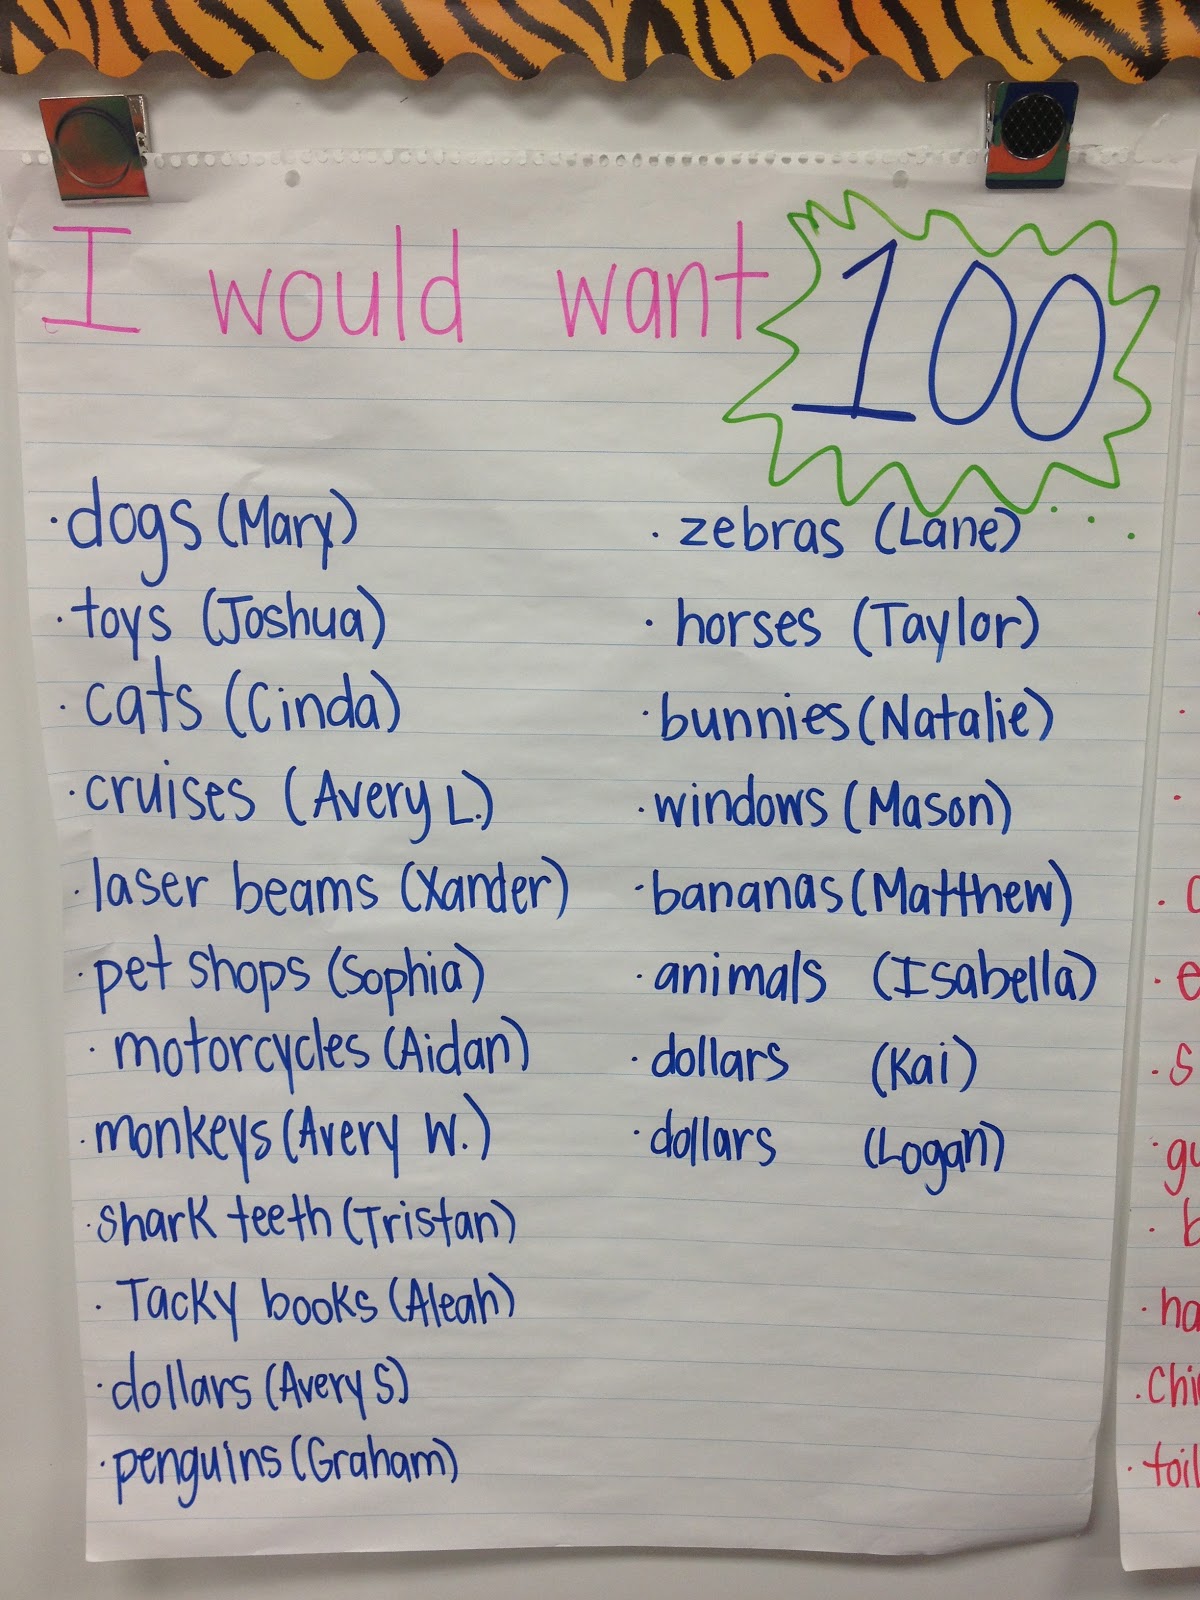 I would want 100
·dogs (Mary)
·toys (Joshua)
·cats (Cinda)
·cruises (Avery L.)
·laser beams (Xander)
·pet shops (Sophia)
·motorcycles (Aidan)
·monkeys (Avery W.)
·shark teeth (Tristan)
·Tacky books (Aleah)
·dollars (Avery S)
·penguins (Graham)
·zebras (Lane)
·horses (Taylor)
·bunnies (Natalie)
·windows (Mason)
·bananas (Matthew)
·animals (Isabella)
·dollars (Kai)
·dollars (Logan)